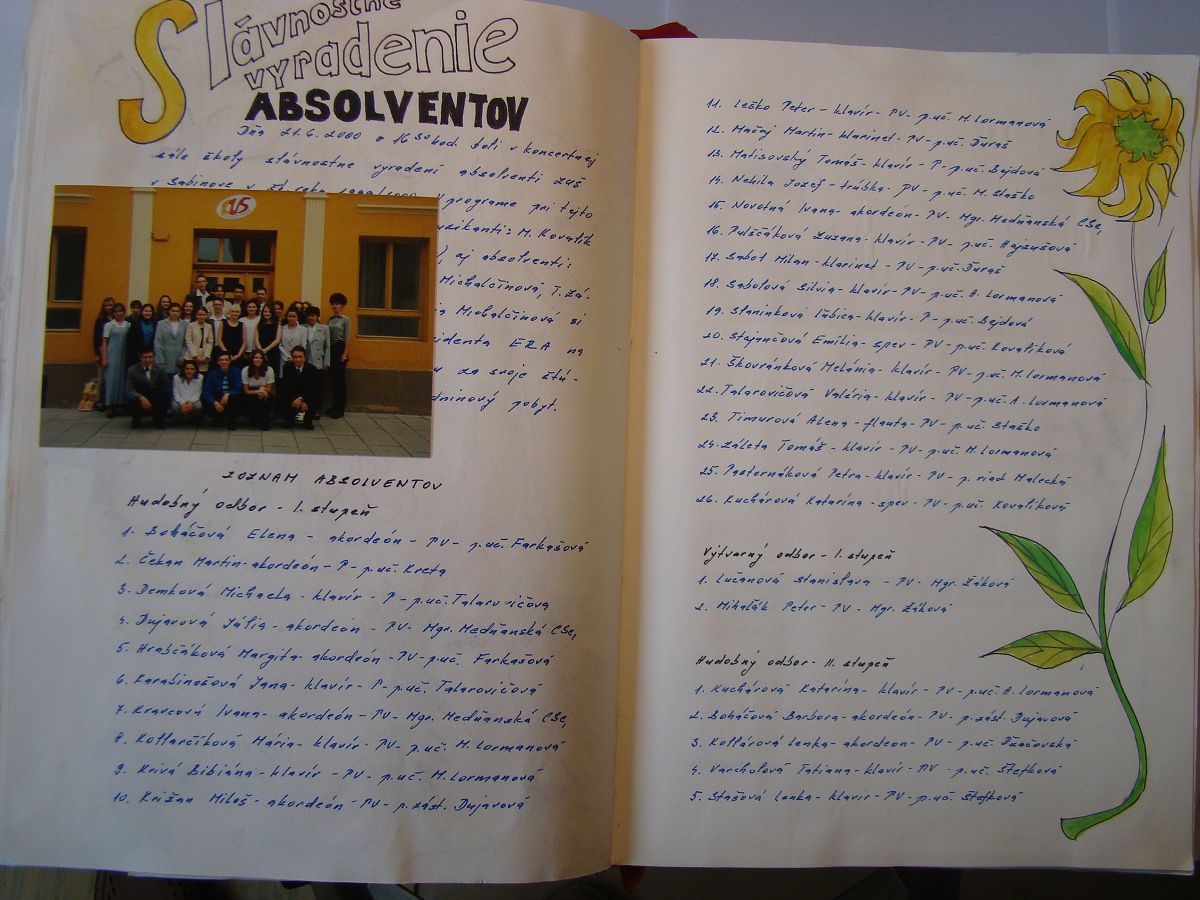 Slávnostné
vyradenie
ABSOLVENTOV
Dňa 21.6.2000 o 16 30 hod. boli v koncertnej
sále školy slávnostne vyradení absolventi ZUŠ
v Sabinove v programe pri tejto
M. Kovalík
), aj absolventi:
Michalčinová, T. Zá-
Michalčinová si
ERA na
za svoje štú-
pobyt.
15
ZOZNAM ABSOLVENTOV
Hudobný odbor - I. stupeň
1. Boháčová Elena - akordeón - PV - p.uč. Farkašová
2. Čekan Martin - akordeón - P - p.uč. Kreta
3. Demková Michaela - klavír - P - p.uč. Talarovičova
4. Dujavová Júlia - akordeón - PV - Mgr. Medňanská CSc,
5. Hrabčáková Margita - akordeón - PV - p.uč. Farkašová
6. Karabinošová Jana - klavír - P - p.uč. Talarovičová
7. Kravcová Ivana - akordeón - PV - Mgr. Medňanská CSc,
8. Kotlarčíková Mária - klavír - PV - p.uč. M. Lormanová
9. Krivá Bibiána - klavír - PV - p.uč. M. Lormanová
10. Križan Miloš - akordeón - PV - p.zást. Dujavová
11. Leško Peter - klavír - PV - p.uč. M. Lormanová
12. Mačej Martin - klarinet - PV - p.uč. Ďuraš
13. Matisovský Tomáš - klavír - P - p.uč. Bejdová
14. Nehila Jozef - trúbka - PV - p.uč. M. Staško
15. Novotná Ivana - akordeón - PV - Mgr. Medňanská CSc,
16. Pulščáková Zuzana - klavír - PV - p.uč. Hajzušová
17. Sabol Milan - klarinet - PV - p.uč. Ďuraš
18. Sabolová Silvia - klavír - PV - p.uč. A. Lormanová
19. Staninková Ľubica - klavír - P - p.uč. Bejdová
20. Stajančová Emília - spev - PV - p.uč. Kovalíková
21. Škovránková Melánia - klavír - PV - p.uč. M. Lormanová
22. Talarovičová Valéria - klavír - PV - p.uč. A. Lormanová
23. Timurová Alena - flauta - PV - p.uč. Staško
24. Záleta Tomáš - klavír - PV - p.uč. M. Lormanová
25. Pasternáková Petra - klavír - PV - p. riad Malecká
26. Kuchárová Katarína - spev - PV - p.uč. Kovalíková
Výtvarný odbor - I. stupeň
1. Lučanová Stanislava - PV - Mgr. Žáková
2. Mihaľák Peter - PV - Mgr. Žáková
Hudobný odbor - II. stupeň
1. Kuchárová Katarína - klavír - PV - p.uč. A. Lormanová
2. Boháčová Barbora - akordeón - PV - p.zást. Dujavová
3. Kotlárová Lenka - akordeon - PV - p.uč. Dzačovská
4. Varcholová Tatiana - klavír - PV - p.uč. Štefková
5. Stašová Lenka - klavír - PV - p.uč. Štefková